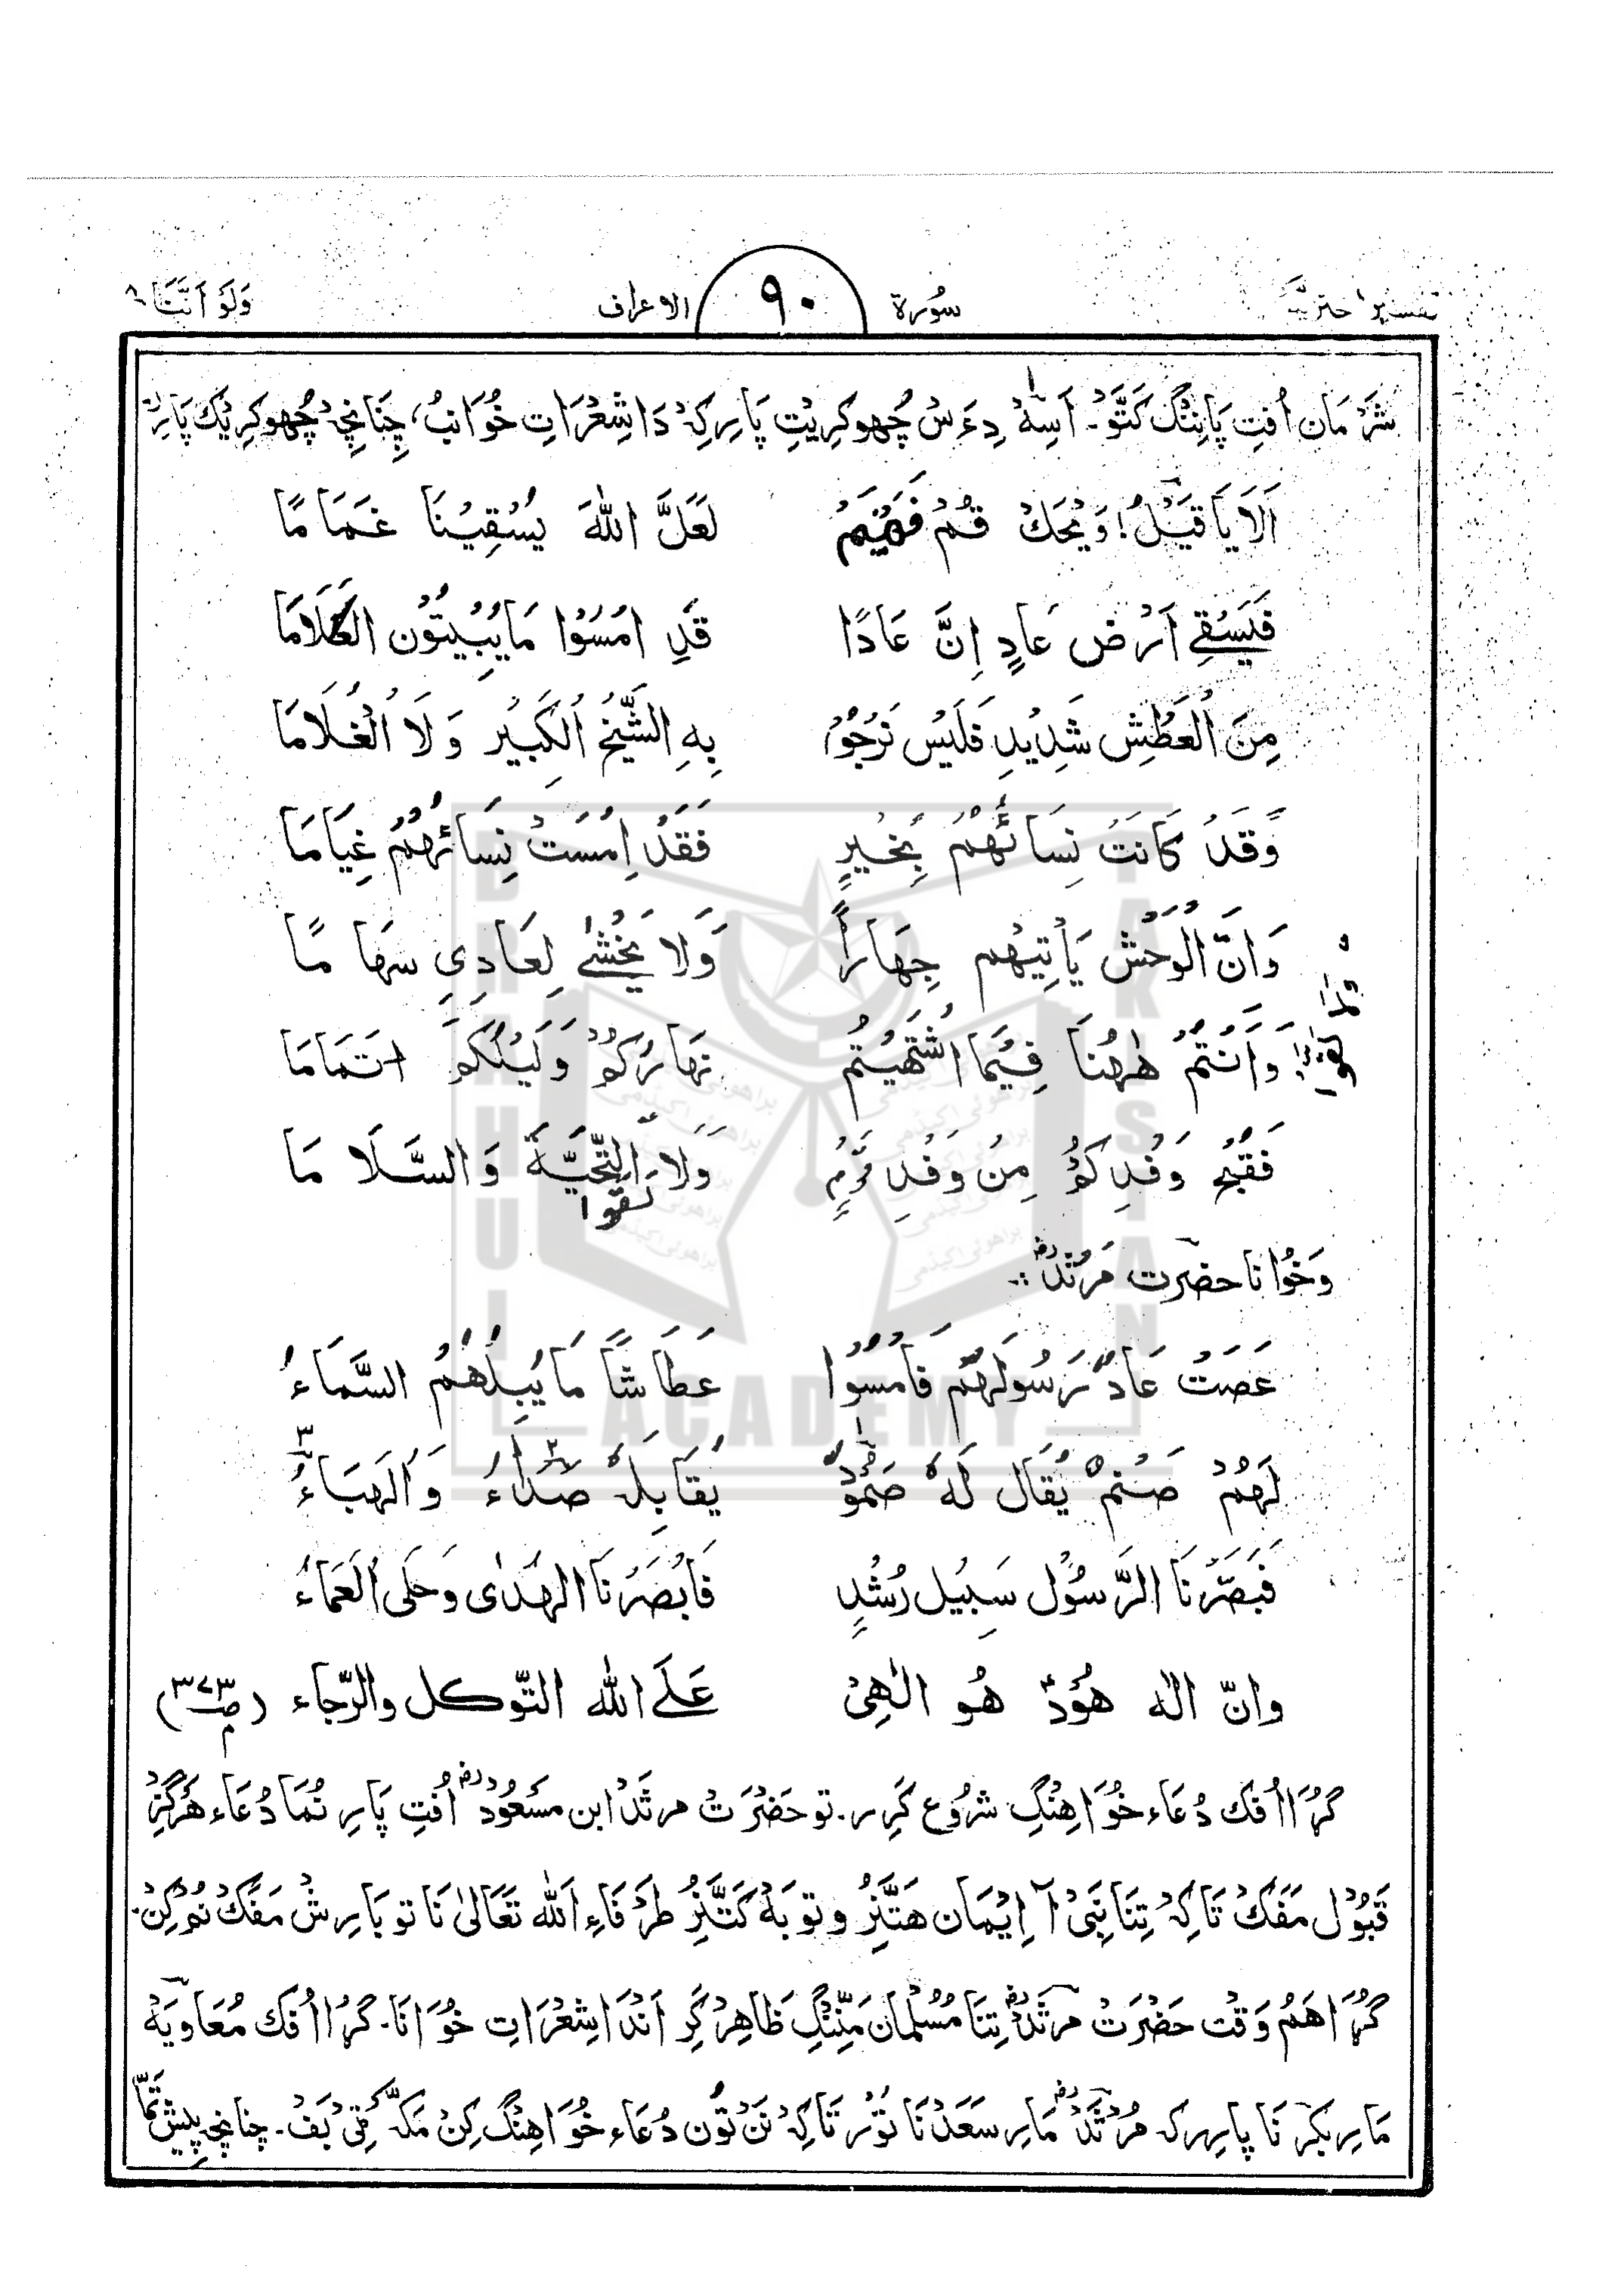 تفسیر اختریہ سُورة ٩٠ الاعراف وَلَوْ اَنَّنَا ٨
شَرْمَان اُفتِ پَانِنْگ کَتَّوْ۔ اَسِہ دِءَس چُھوکرِیتِ پَارِکِہ دَا شِعْرَاتِ خُوَانبُ، چِنَانچِہ چُھوکرِیْک پَارِر
اَلَا يَا قَيْلُ! وَيْحَكْ قُمْ فَهَيْنِمْ لَعَلَّ اللهَ يَسْقِيْنَا غَمَامًا
فَيَسْقِي اَرْضَ عَادٍ اِنَّ عَادًا قَدِ امْسَوْا مَا يُبِيْتُوْن الْكَلَامَا
مِنَ الْعَطْشِ شَدِيْدِ فَلَيْسَ نَرْجُوْا بِهِ الشَّيْخَ الْكَبِيْرِ وَلَا الْغُلَامَا
وَقَدْ كَانَتْ نِسَائُهُمْ بِخَيْرٍ فَقَدْ اِمْسَتْ نِسَائُهُمْ غِيَامَا
وَاِنَّ الْوَحْشَ يَأتِيْهِم جِهَارًا وَلَا يَخْشٰے لِعَادِيٍ سَهَامًا
وَاَنْتُمْ هٰهُنَا فِيْمَا اشْتَهَيْتُمْ نَهَارُكُمْ وَلَيْلُكُمْ اتَمَامَا
فَقُبِّحَ وَفْدِكُمْ مِنْ وَفْدِ قَوْمٍ وَلَا لَقُّوا التَّحِيَّةَ وَالسَّلَامَا
وَخُوَانَا حضرت مَرْثَدْؓ:
عَصَتْ عَادٌ رَسُوْلَهُمْ فَامْسَوْا عَطَاشًا مَا يُبِلُّهُمُ السَّمَاءُ
لَهُمْ صَنَمٌ يُقَال لَهٗ صَمُوْدٌ يُقَابِلُهٗ صَدَاءُ وَالْهَبَاءُ
فَبَصَّرَنَا الرَّسُوْل سَبِيْل رُشْدٍ فَابْصَرْنَا الْهُدٰى وَخَلَى الْعَمَاءُ
وانّ الٰه هُوْدٌ هُو الٰهِيْ عَلَے الله التّوكل والرّجاء (صـ٣٧٣)
گُرَا اُفک دُعَاء خُوَاہِنْگِ شُرُوع کَرِر۔ تو حَضْرَتْ مرثَدْ ابن مسَعُوْدؓ اُفتِ پَارِ نُمَا دُعَاء ہَرْگِزْ
قَبُوْل مَفَکْ تَاکِہ تِنَا نَبِیْ آ اِیْمَان ہَتَّنِرْ و توبَہْ کَتَّنِرْ طَرْفَاءِ اَللّٰه تَعَالیٰ نَا تو بَارِشْ مَفَکْ نُمْکِنْ۔
گُرَا ہَمُ وَقْت حَضْرَتْ مَرثَدْؓ تِنَا مُسْلمَان مَنِّنْگِ ظَاہِرْ کَرِ اَنْدَا شِعْرَاتِ خُوَانَا۔ گُرَا اُفک مُعَاوِيَہْ
مَارِ بَکَرْ نَا پارِہرکہ مَرْثَدْؓ مَارِ سَعَدْ نَا تَوْرِ تَاکِہ نَن تُوْن دُعَاء خُوَاہِنْگ کِنْ مَکَّہ غِیْ بَفْ۔ چنانچہ پِیْش تَمَّا